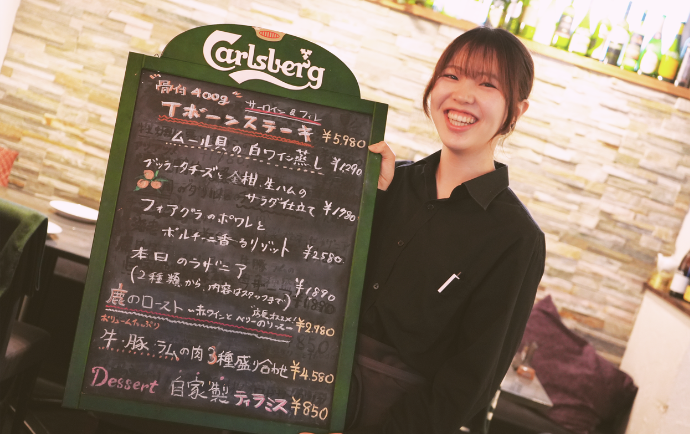 Carlsberg
骨付400g サーロイン&フィレ
Tボーンステーキ ¥5,980
ムール貝の白ワイン蒸し ¥1,290
ブッラータチーズと金柑、生ハムの
サラダ仕立て ¥1,980
フォアグラのポワレと
ポルチーニ香るリゾット ¥2,580
本日のラザニア ¥1,890
(2種類から、内容はスタッフまで!)
鹿のロースト 〜赤ワインとベリーのソース〜 ¥2,780
ボリュームたっぷり
牛・豚・ラムの肉3種盛り合わせ ¥4,580
Dessert 自家製ティラミス ¥850